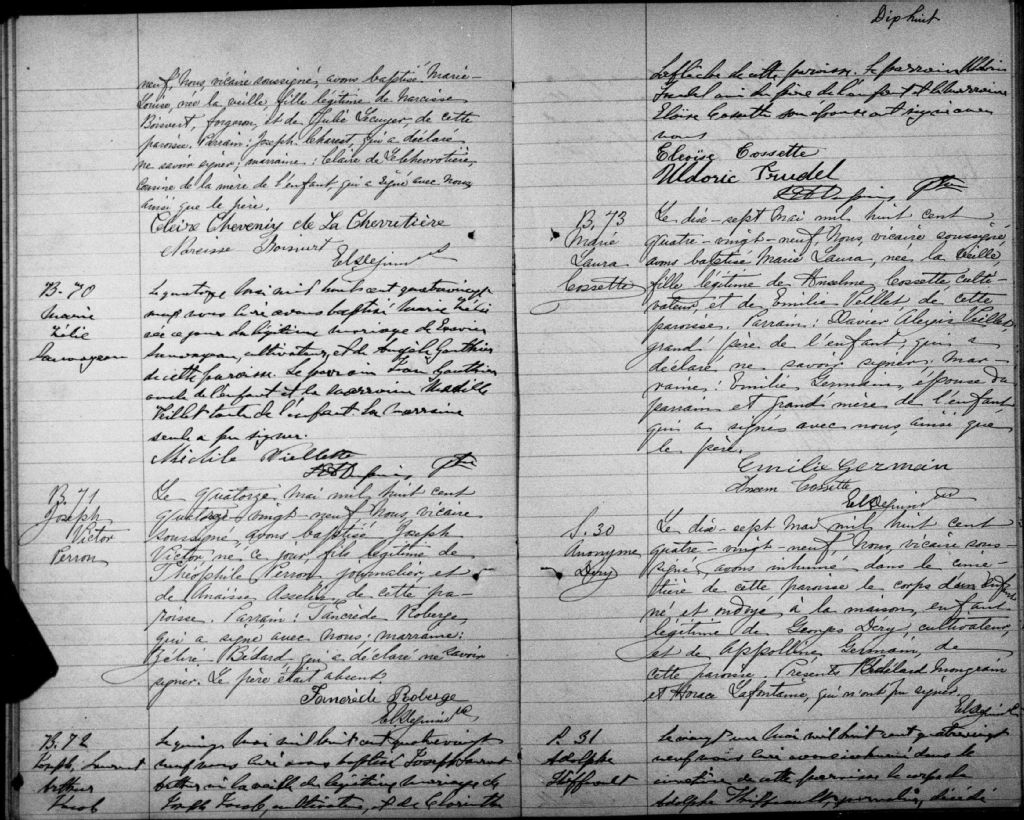 neuf, Nous, vicaire soussigné, avons baptisé Marie-
Louise, née la veille, fille légitime de Narcisse
Boisvert, forgeron, et de Julie Lécuyer de cette
paroisse. Parrain: Joseph Charest, qui a déclaré
ne savoir signer; marraine: Claire de Lachevrotière,
cousine de la mère de l'enfant, qui a signé avec Nous
ainsi que le père.
Claire Chevenis de La Chevrotière
Narcisse Boisvert
B. 70
Marie
Zélie
Sauvageau
Le quatorze mai mil huit cent quatrevingt
neuf nous curé avons baptisé Marie Zélie
née ce jour du légitime mariage de
Sauvageau, cultivateur, et de Angèle Gauthier
de cette paroisse. Le parrain Gauthier
oncle de l'enfant et la marraine
Veillet tante de l'enfant. La marraine
seule a pu signer.
Viellette
Ptre
B. 71
Joseph
Victor
Perron
Le quatorze mai mil huit cent
quatre-vingt-neuf Nous, vicaire
soussigné, avons baptisé Joseph
Victor, né ce jour, fils légitime de
Théophile Perron, journalier, et
de Anaïsse Asselin, de cette pa-
roisse. Parrain: Tancrède Roberge
qui a signé avec nous; marraine:
Bédard qui a déclaré ne savoir
signer. Le père était absent
Tancrède Roberge
B. 72
Joseph Laurent
Arthur
Jacob
Le quinze mai mil huit cent quatrevingt
neuf nous curé avons baptisé Joseph Laurent
Arthur né la veille du légitime mariage de
Joseph Jacob, cultivateur, et de
Dix huit
Laflèche de cette paroisse. Le parrain
Trudel ami du père de l'enfant et la marraine
Eloïse Cossette son épouse ont signé avec
nous
Eloïse Cossette
Uldoric Trudel
Ptre
B. 73
Marie
Laura
Cossette
Le dix-sept mai mil huit cent
quatre-vingt-neuf, Nous, vicaire soussigné,
avons baptisé Marie Laura, née la veille,
fille légitime de Anselme Cossette culti-
vateur, et de Emilie Veillet de cette
paroisse. Parrain: Xavier Alexis Veillet,
grand père de l'enfant, qui a
déclaré ne savoir signer; mar-
raine: Emilie Germain, épouse du
parrain et grand'mère de l'enfant
qui a signés avec nous, ainsi que
le père.
Emilie Germain
Cossette
S. 30
Anonyme
Déry
Le dix-sept mai mil huit cent
quatre-vingt-neuf, Nous, vicaire sous-
signé, avons inhumé dans le cime-
tière de cette paroisse le corps d'un enfant
né et ondoyé à la maison, enfant
légitime de Georges Déry, cultivateur,
et de Appolline Germain, de
cette paroisse. Présents Mongrain
et Horace Lafontaine, qui n'ont pu signer.
S. 31
Adolphe
Thiffault
Le vingt un mai mil huit cent quatrevingt
neuf nous curé avons inhumé dans le
cimetière de cette paroisse le corps de
Adolphe Thiffault, journalier, décédé